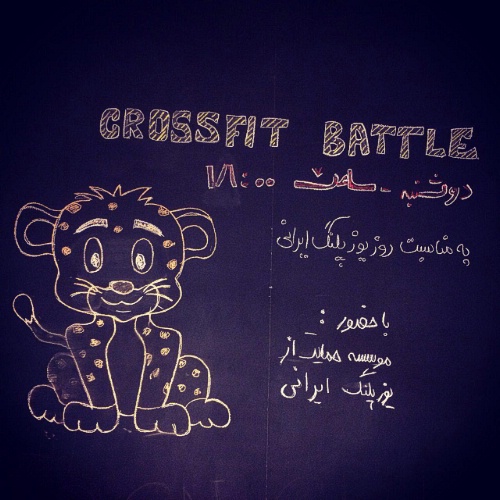 CROSSFIT BATTLE
دوشنبه - ساعت ۱۸:۰۰
به مناسبت روز یوزپلنگ ایرانی
با حضور :
موسسه حمایت از
یوزپلنگ ایرانی